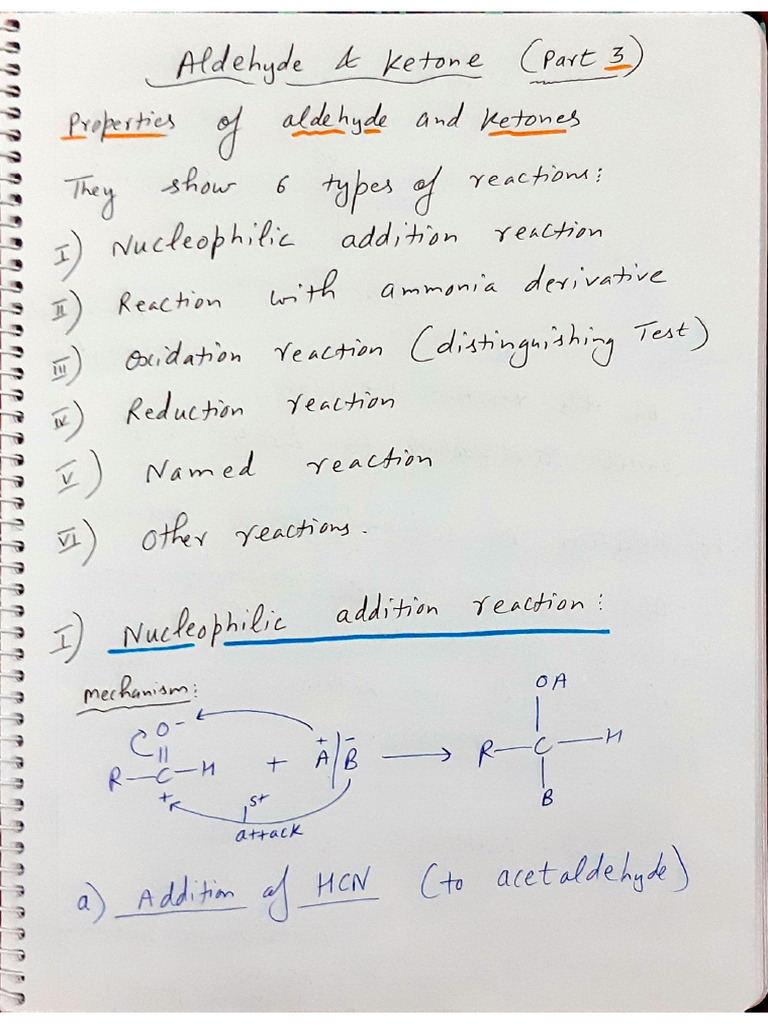 Aldehyde & Ketone (Part 3)
Properties of aldehyde and Ketones
They show 6 types of reactions:
I) Nucleophilic addition reaction
II) Reaction with ammonia derivative
III) Oxidation reaction (distinguishing Test)
IV) Reduction reaction
V) Named reaction
VI) Other reactions.
I) Nucleophilic addition reaction:
Mechanism:
OA
O-
R-C-H + A+|B- → R-C-H
+
1st
attack
B
a) Addition of HCN (to acetaldehyde)